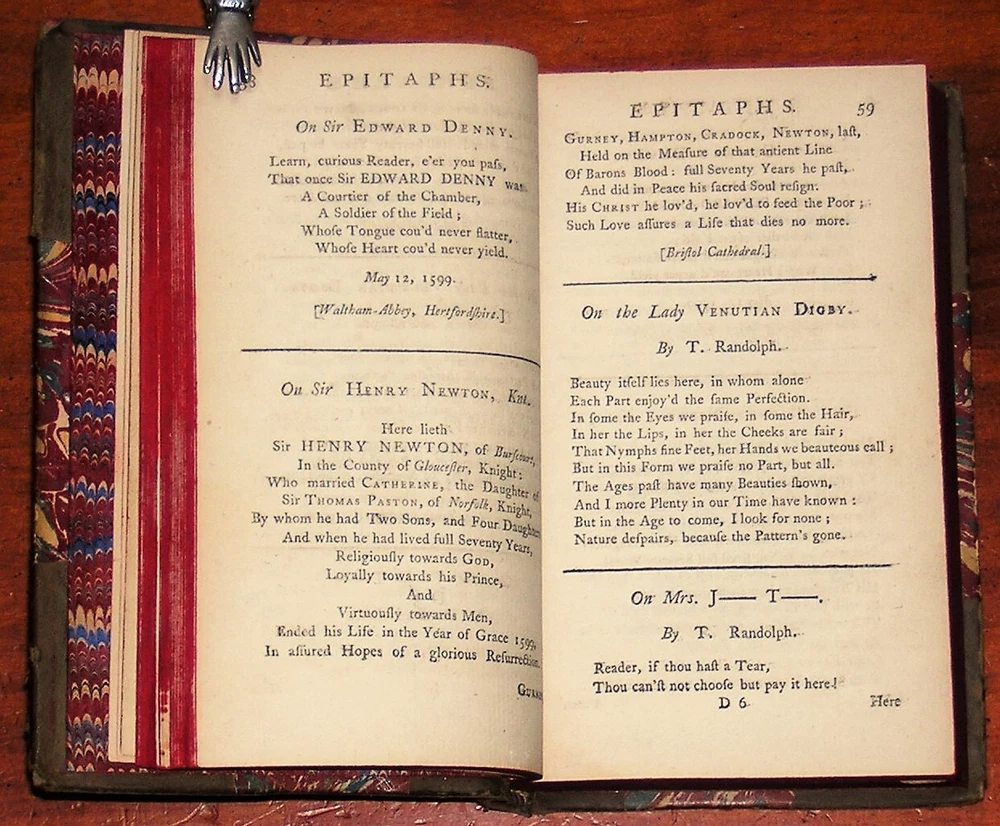 EPITAPHS.
On Sir EDWARD DENNY.
Learn, curious Reader, e'er you paſs,
That once Sir EDWARD DENNY was
A Courtier of the Chamber,
A Soldier of the Field;
Whoſe Tongue cou'd never flatter,
Whoſe Heart cou'd never yield.
May 12, 1599.
[Waltham-Abbey, Hertfordſhire.]
On Sir HENRY NEWTON, Knt.
Here lieth
Sir HENRY NEWTON, of
In the County of Gloceſter, Knight:
Who married CATHERINE, the Daughter of
Sir THOMAS PASTON, of Norfolk, Knight,
By whom he had Two Sons, and Four Daughters
And when he had lived full Seventy Years,
Religiouſly towards GOD,
Loyally towards his Prince,
And
Virtuouſly towards Men,
Ended his Life in the Year of Grace 1599,
In aſſured Hopes of a glorious Reſurrection.
EPITAPHS. 59
GURNEY, HAMPTON, CRADOCK, NEWTON, laſt,
Held on the Meaſure of that antient Line
Of Barons Blood: full Seventy Years he paſt,
And did in Peace his ſacred Soul reſign.
His CHRIST he lov'd, he lov'd to feed the Poor;
Such Love aſſures a Life that dies no more.
[Briſtol Cathedral.]
On the Lady VENUTIAN DIGBY.
By T. Randolph.
Beauty itſelf lies here, in whom alone
Each Part enjoy'd the ſame Perfection.
In ſome the Eyes we praiſe, in ſome the Hair,
In her the Lips, in her the Cheeks are fair;
That Nymphs fine Feet, her Hands we beauteous call;
But in this Form we praiſe no Part, but all.
The Ages paſt have many Beauties ſhown,
And I more Plenty in our Time have known:
But in the Age to come, I look for none;
Nature deſpairs, becauſe the Pattern's gone.
On Mrs. J—— T——.
By T. Randolph.
Reader, if thou haſt a Tear,
Thou can'ſt not chooſe but pay it here!
D 6 Here